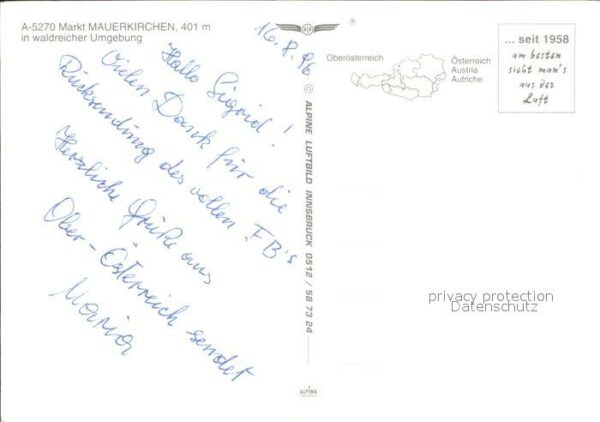 A-5270 Markt MAUERKIRCHEN, 401 m
in waldreicher Umgebung
16.8.96
Hallo Sigrid!
Vielen Dank für die
Rücksendung des vollen FB's
Herzliche Grüße aus
Ober-Österreich sendet
Maria
© ALPINE LUFTBILD INNSBRUCK 0512 / 58 73 24
ALPINA
Oberösterreich
Österreich
Austria
Autriche
... seit 1958
am besten
sieht man's
aus der
Luft
privacy protection
Datenschutz